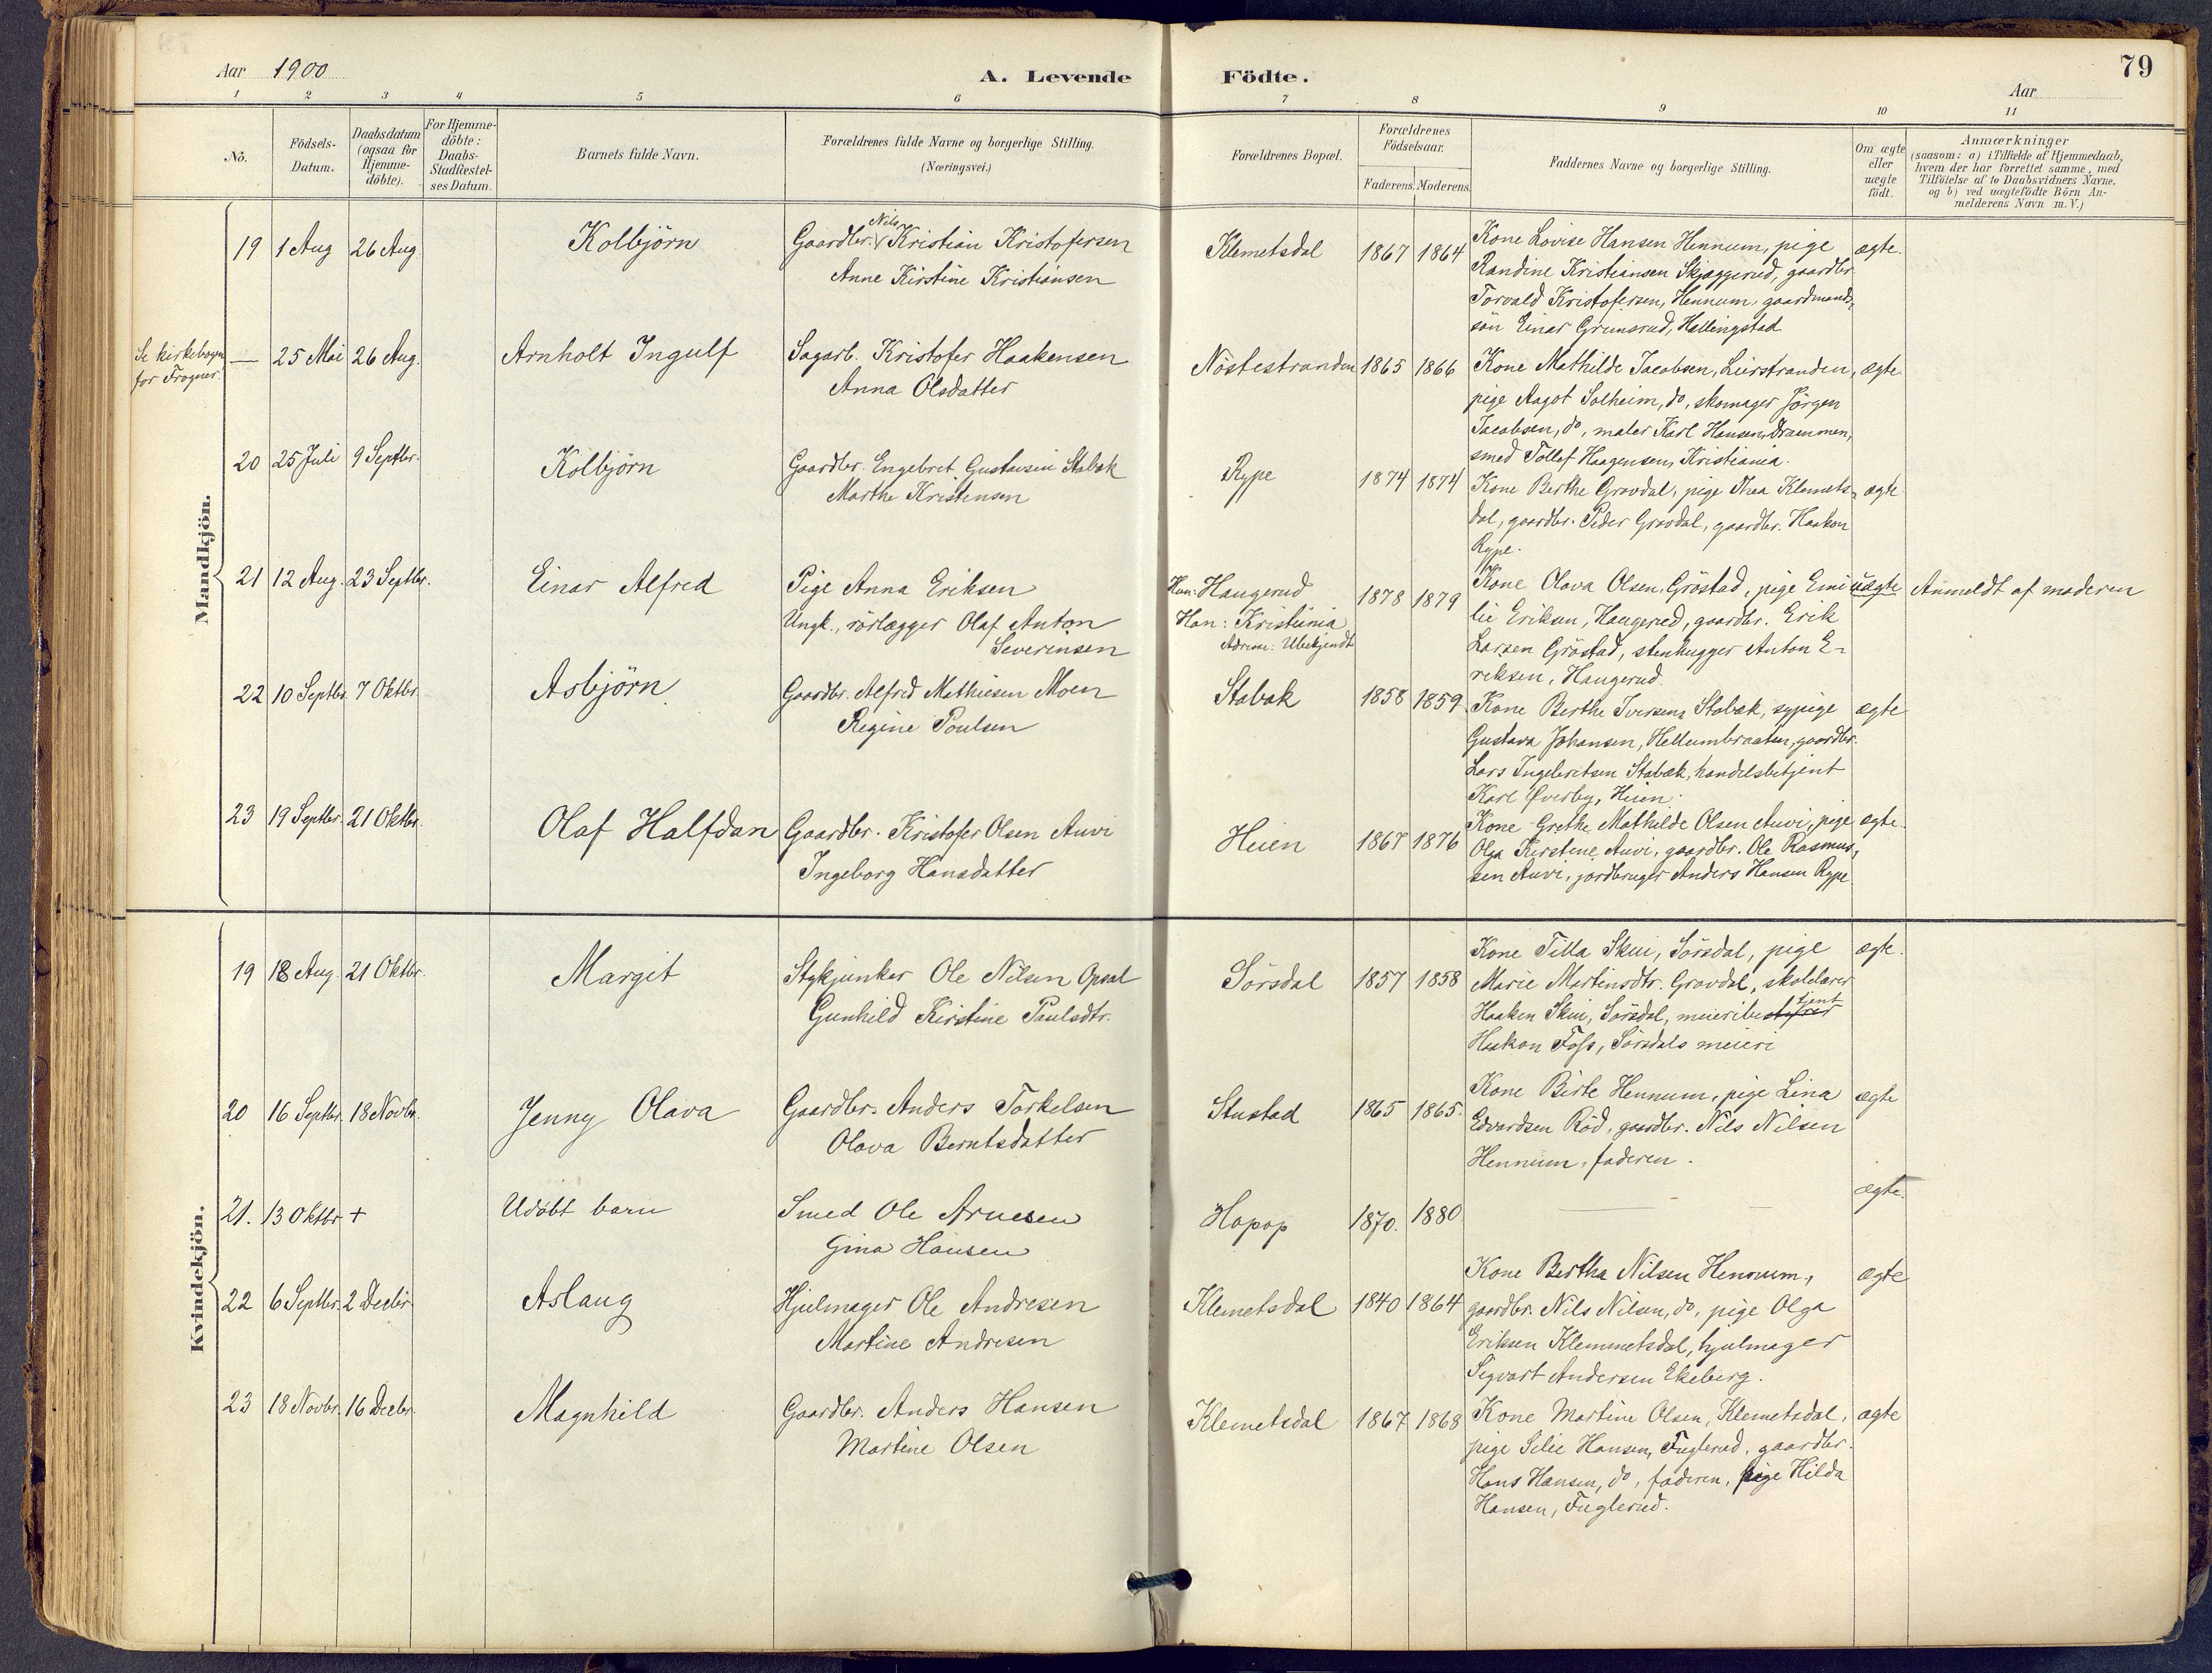 Aar 1900
A. Levende Födte.
79
Aar
1 2 3 4 5 6 7 8 9 10 11
No.
Födsels-Datum.
Daabsdatum (ogsaa for Hjemme-döbte).
For Hjemme-döbte: Daabs-Stadfæstel-ses Datum.
Barnets fulde Navn.
Forældrenes fulde Navne og borgerlige Stilling.
(Næringsvei.)
Forældrenes Bopæl.
Forældrenes Födselsaar.
Faderens. Moderens.
Faddernes Navne og borgerlige Stilling.
Om ægte eller uægte födt.
Anmærkninger
(saasom: a) i Tilfælde af Hjemmedaab,
hvem der har forrettet samme, med
Tilföielse af to Daabsvidners Navne,
og b) ved uægtefödte Börn An-
melderens Navn m. V.)
Mandkjön.
19 1 Aug 26 Aug Kolbjörn Gaardbr. Nils Kristian Kristofersen
Anne Kirstine Kristiansen
Klemetsdal 1867 1864
Kone Lovise Hansen Hennum, pige
Randine Kristiansen Skjæggerud, gaardbr.
Torvald Kristofersen, Hennum, gaardmands-
sön Einar Grunsrud, Hallingstad
ægte.
Se kirkebogen
for Frogner.
— 25 Mai 26 Aug. Arnholt Ingulf Sagarb. Kristofer Haakensen
Anna Olsdatter
Nöstestranden 1865 1866
Kone Mathilde Jacobsen, Lierstranden,
pige Aagot Solheim, do, skomager Jörgen
Jacobsen, do, maler Karl Hansen, Drammen,
smed Tollef Haagensen, Kristiania.
ægte
20 25 Juli 9 Septbr. Kolbjörn Gaardbr. Engebret Gustavsen Stabæk
Marthe Kristensen
Rype 1874 1874
Kone Berthe Gravdal, pige Thea Klemets-
dal, gaardbr. Peder Gravdal, gaardbr. Haakon
Rype.
ægte
21 12 Aug. 23 Septbr. Einar Alfred Pige Anna Eriksen
Ungk., rörlægger Olaf Anton
Severinsen
Hun: Haugerud
Han: Kristiania
Adresse: Ubekjendt
1878 1879
Kone Olava Olsen, Gröstad, pige Emi-
lie Eriksen, Haugerud, gaardbr. Erik
Larsen Gröstad, stenhugger Anton E-
riksen, Haugerud.
uægte Anmeldt af moderen
22 10 Septbr. 7 Oktbr. Asbjörn. Gaardbr. Alfred Mathiesen Moen
Regine Poulsen
Stabæk 1858 1859
Kone Berthe Iversen, Stabæk, sypige
Gustava Johansen, Hellumbraaten, gaardbr.
Lars Ingebretsen Stabæk, handelsbetjent
Karl Øverby, Heien.
ægte
23 19 Septbr. 21 Oktbr. Olaf Halfdan Gaardbr. Kristofer Olsen Auvi
Ingeborg Hansdatter
Heien 1867 1876
Kone Grethe Mathilde Olsen Auvi, pige
Olga Kirstine Auvi, gaardbr. Ole Rasmus-
sen Auvi, jordbruger Anders Hansen Rype
ægte.
Kvindekjön.
19 18 Aug. 21 Oktbr. Margit Stykjunker Ole Nilsen Opsal
Gunhild Kirstine Paulsdtr.
Sörsdal 1857 1858
Kone Tilla Skui, Sörsdal, pige
Marie Martinsdtr. Gravdal, skolelærer
Haaken Skui, Sörsdal, meieribestyrer tjent
Haakon Foss, Sörsdals meieri
ægte.
20 16 Septbr. 18 Novbr. Jenny Olava Gaardbr. Anders Torkelsen
Olava Berntsdatter
Stustad 1865 1865.
Kone Birte Hennum, pige Lina
Edvardsen Röd, gaardbr. Nils Nilsen
Hennum, faderen.
ægte
21. 13 Oktbr + Udöbt barn Smed Ole Arnesen
Gina Hansen
Hopop 1870. 1880 —
ægte.
22 6 Septbr. 2 Decbr. Aslaug Hjulmager Ole Andresen
Martine Andresen
Klemetsdal 1840 1864
Kone Bertha Nilsen Hennum,
gaardbr. Nils Nilsen, do, pige Olga
Eriksen Klemmetsdal, hjulmager
Sigvart Andersen Ekeberg.
ægte
23 18 Novbr. 16 Decbr. Magnhild Gaardbr. Anders Hansen
Martine Olsen
Klemetsdal 1867 1868
Kone Martine Olsen, Klemetsdal,
pige Silie Hansen, Fuglerud, gaardbr.
Hans Hansen, do, faderen, pige Hilda
Hansen, Fuglerud.
ægte